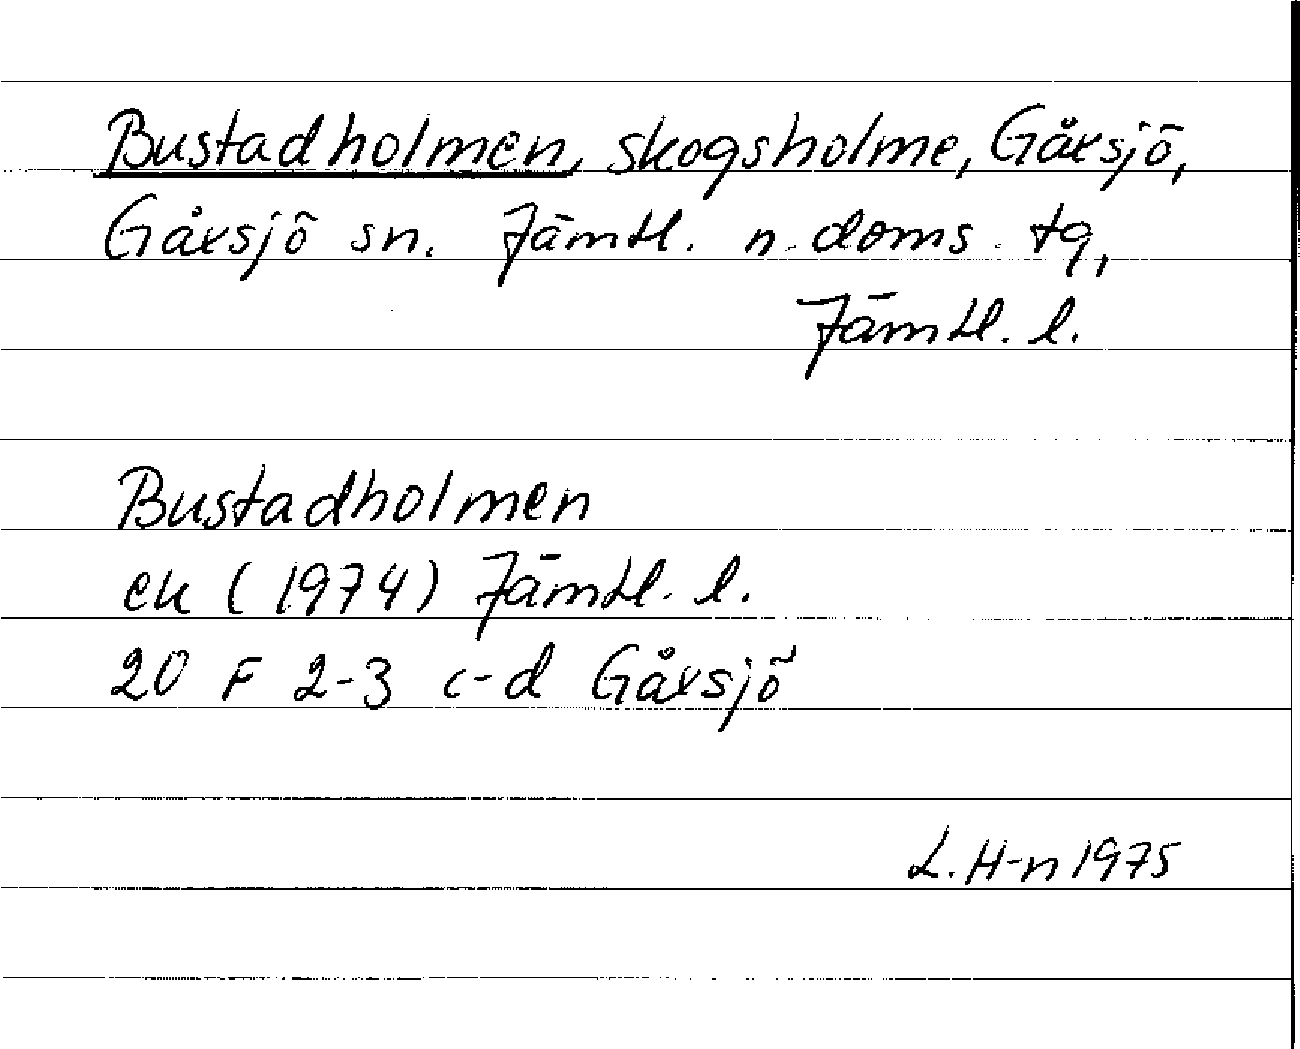 Bustadholmen, skogsholme, Gåxsjö,
Gåxsjö sn. Jämtl. n. doms. tg,
Jämtl. l.
Bustadholmen
ek (1974) Jämtl. l.
20 F 2-3 c-d Gåxsjö
L. H-n 1975